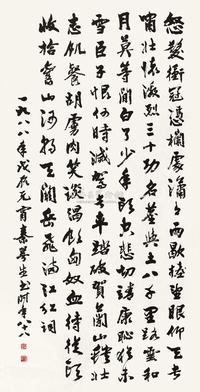 怒髮衝冠憑欄處瀟瀟雨歇擡望眼仰天長
嘯壯懷激烈三十功名塵與土八千里路雲和
月莫等閒白了少年頭空悲切靖康恥猶未
雪臣子恨何時滅駕長車踏破賀蘭山缺壯
志飢餐胡虜肉笑談渴飲匈奴血待從頭
收拾舊山河朝天闕岳飛滿江紅詞
一九八八年戊辰元宵秦萼生書時年八十八